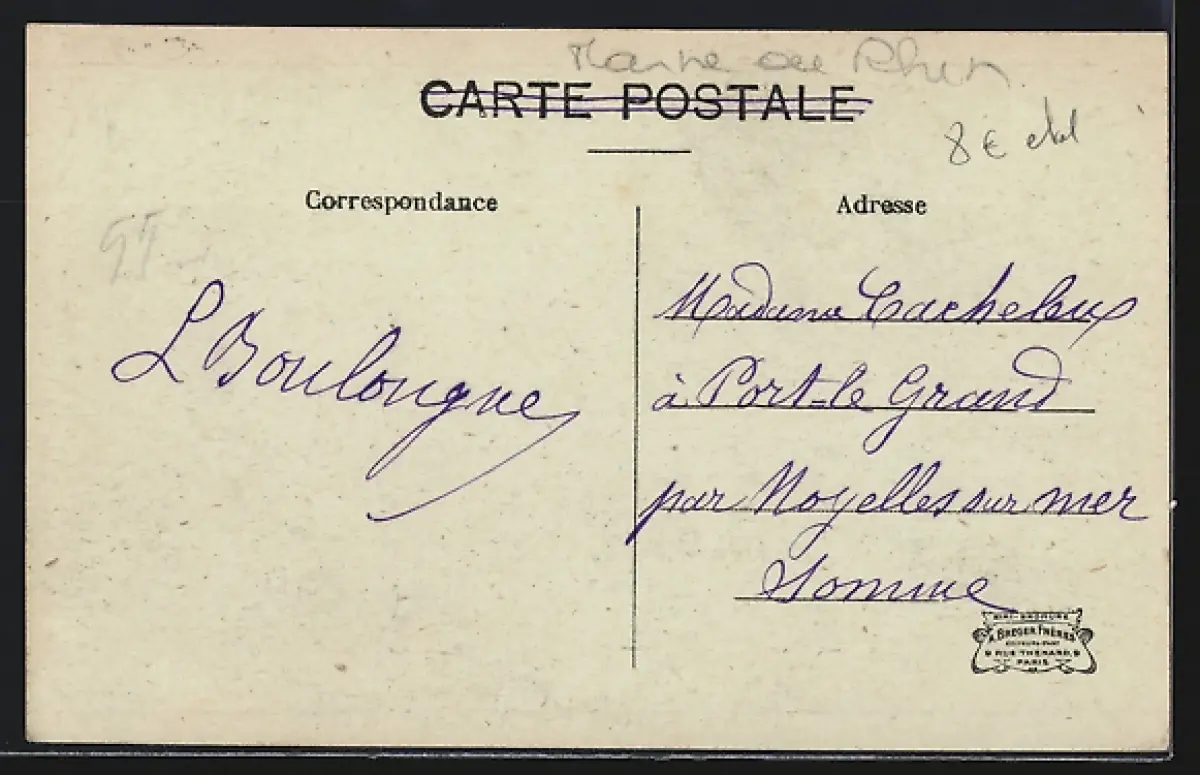 Marne au Rhin
CARTE POSTALE
8 €
Correspondance
Adresse
L Boulongne
Madame Cacheleux
à Port-le Grand
par Noyelles sur mer
Somme
A. BREGER FRÈRES
9 RUE THÉNARD, 9
PARIS